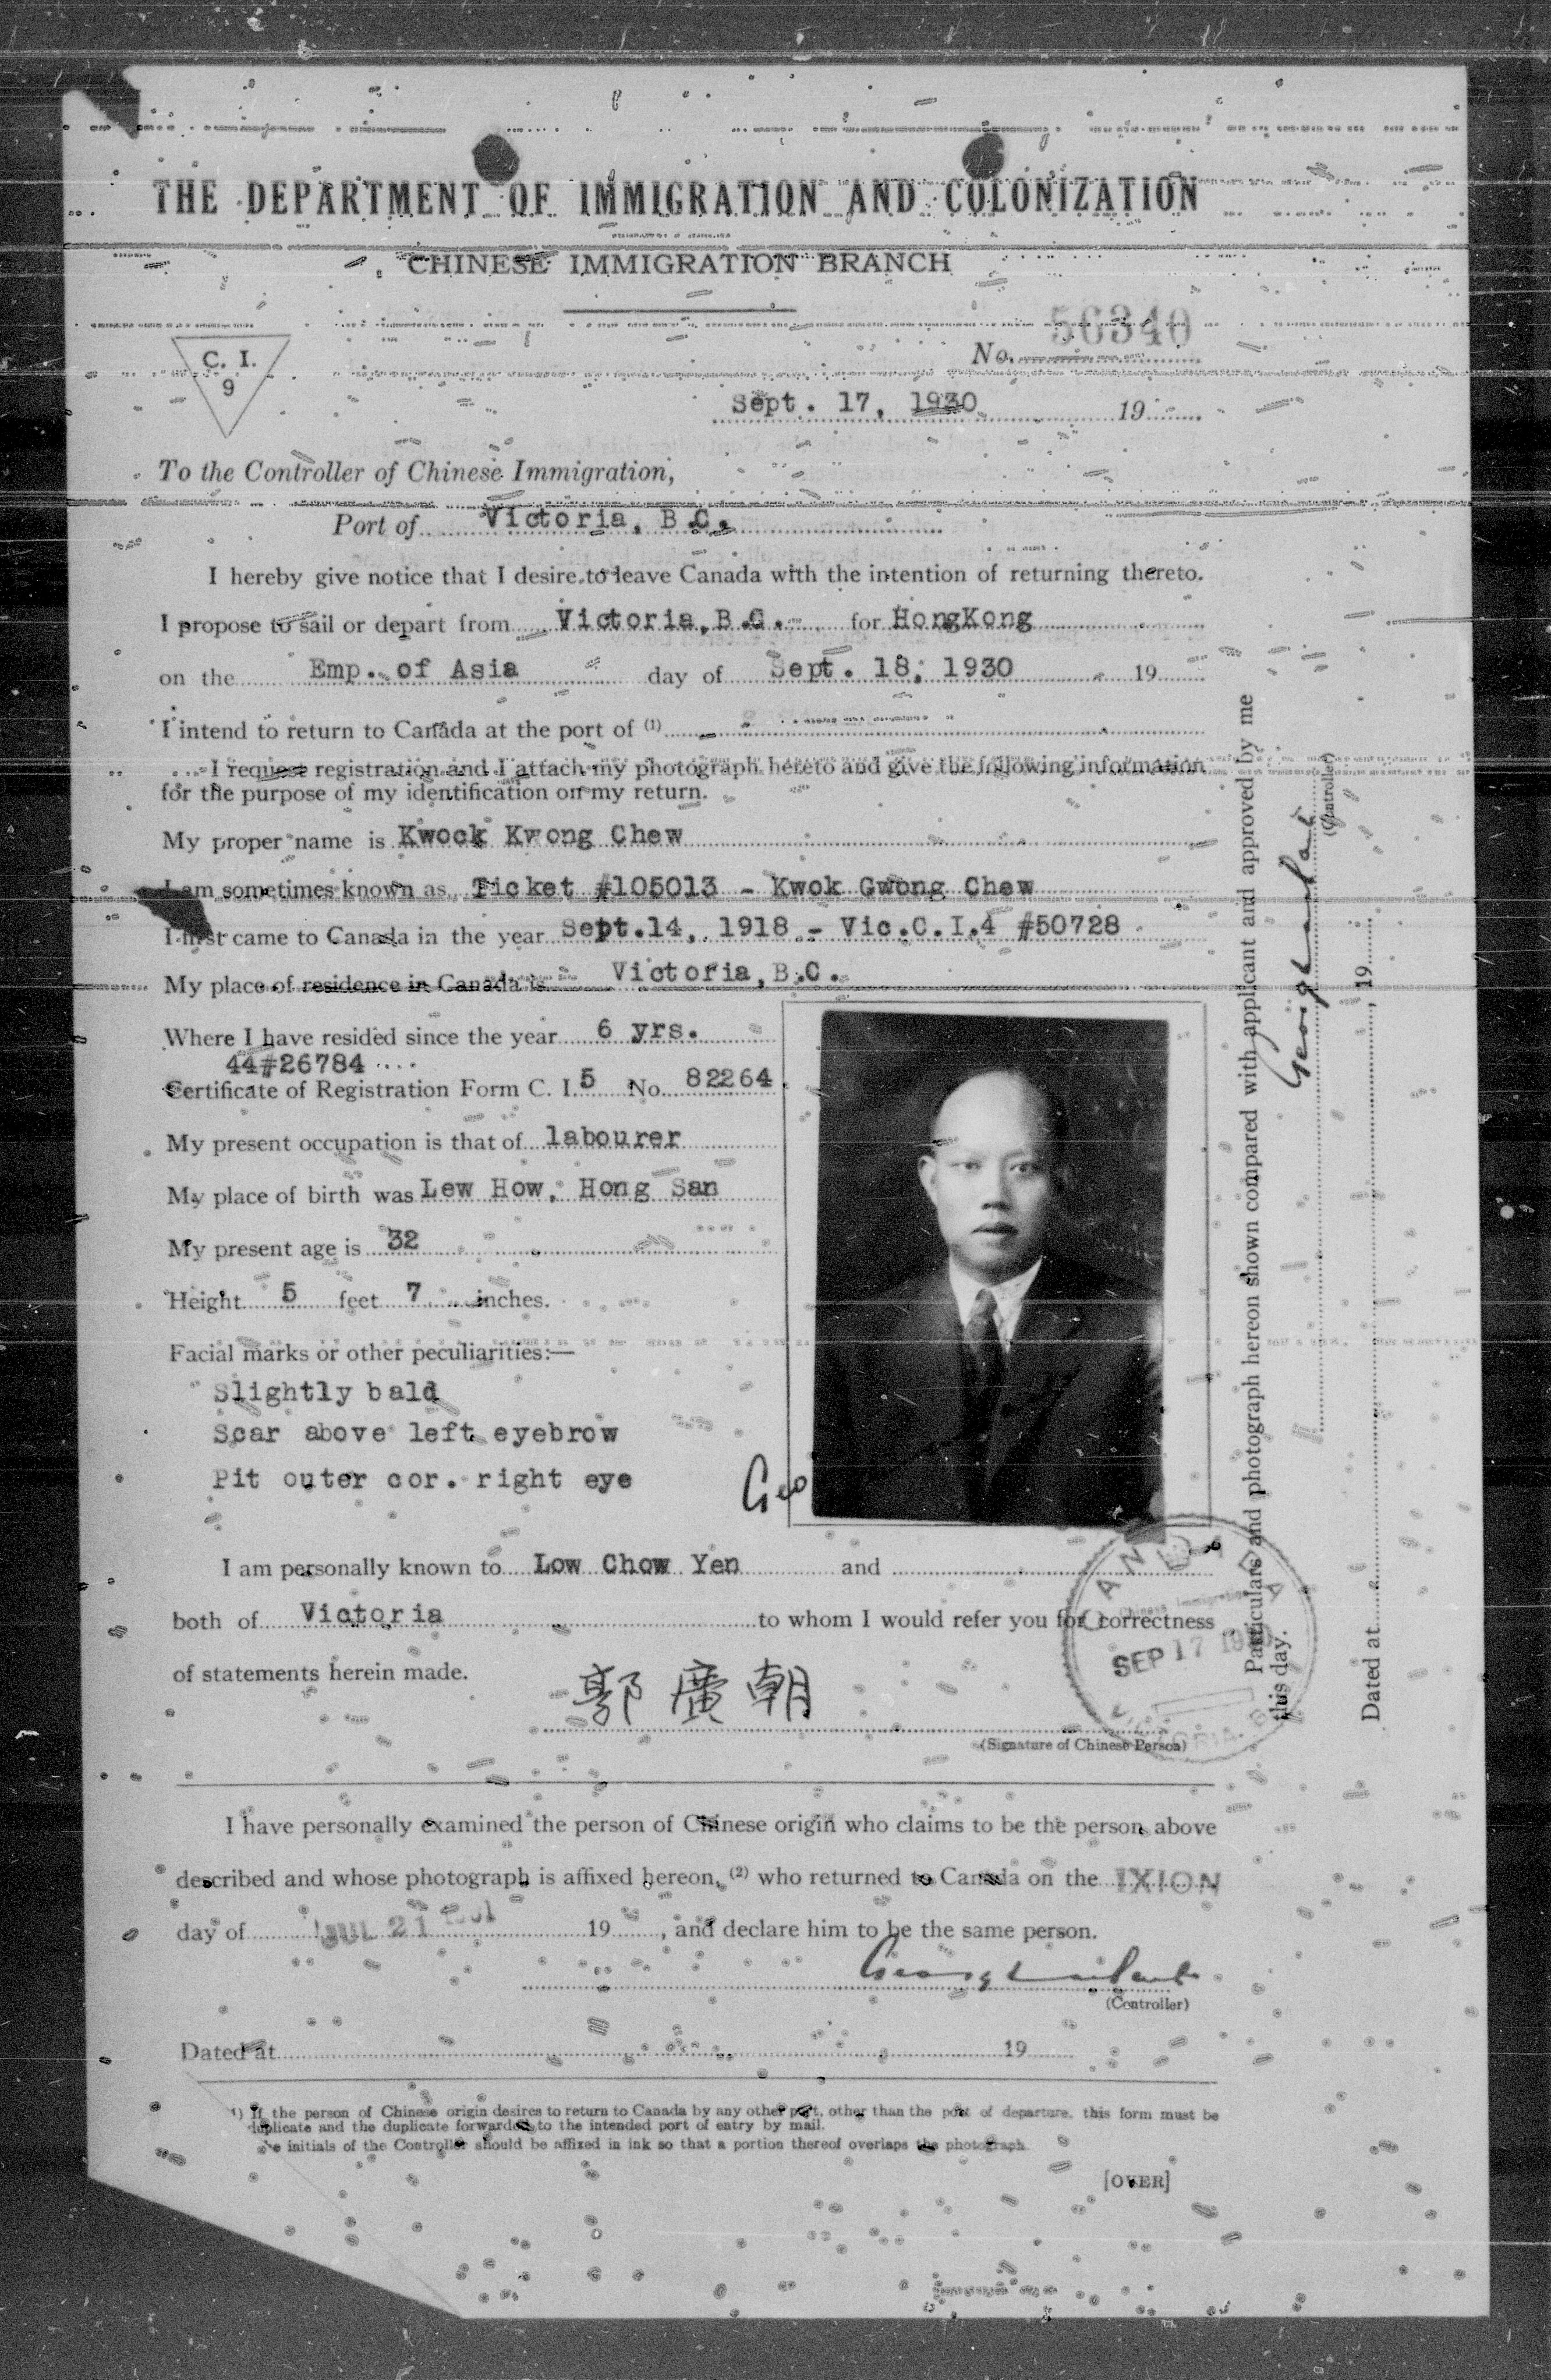 THE DEPARTMENT OF IMMIGRATION AND COLONIZATION
CHINESE IMMIGRATION BRANCH
C. I.
9
No. 56340
Sept. 17, 1930 19
To the Controller of Chinese Immigration,
Port of Victoria, B.C.
I hereby give notice that I desire to leave Canada with the intention of returning thereto.
I propose to sail or depart from Victoria, B.C. for HongKong
on the Emp. of Asia day of Sept. 18, 1930 19
I intend to return to Canada at the port of (1)
I request registration and I attach my photograph hereto and give the following information
for the purpose of my identification on my return.
My proper name is Kwock Kwong Chew
I am sometimes known as Ticket #105013 - Kwok Gwong Chew
I first came to Canada in the year Sept.14, 1918 - Vic.C.I.4 #50728
My place of residence in Canada is Victoria, B.C.
Where I have resided since the year 6 yrs.
44#26784
Certificate of Registration Form C. I. 5 No. 82264
My present occupation is that of labourer
My place of birth was Lew How, Hong San
My present age is 32
Height 5 feet 7 inches.
Facial marks or other peculiarities:—
Slightly bald
Scar above left eyebrow
Pit outer cor. right eye
Geo
I am personally known to Low Chow Yen and
both of Victoria to whom I would refer you for correctness
of statements herein made.
郭廣朝
(Signature of Chinese Person)
CANADA
Chinese Immigration
SEP 17 1930
VICTORIA, B.
Particulars and photograph hereon shown compared with applicant and approved by me
this day.
(Controller)
Dated at , 19
I have personally examined the person of Chinese origin who claims to be the person above
described and whose photograph is affixed hereon, (2) who returned to Canada on the IXION
day of JUL 21 1931 19 , and declare him to be the same person.
(Controller)
Dated at 19
1) If the person of Chinese origin desires to return to Canada by any other port, other than the port of departure, this form must be
duplicate and the duplicate forwarded to the intended port of entry by mail.
e initials of the Controller should be affixed in ink so that a portion thereof overlaps the photograph.
[OVER]